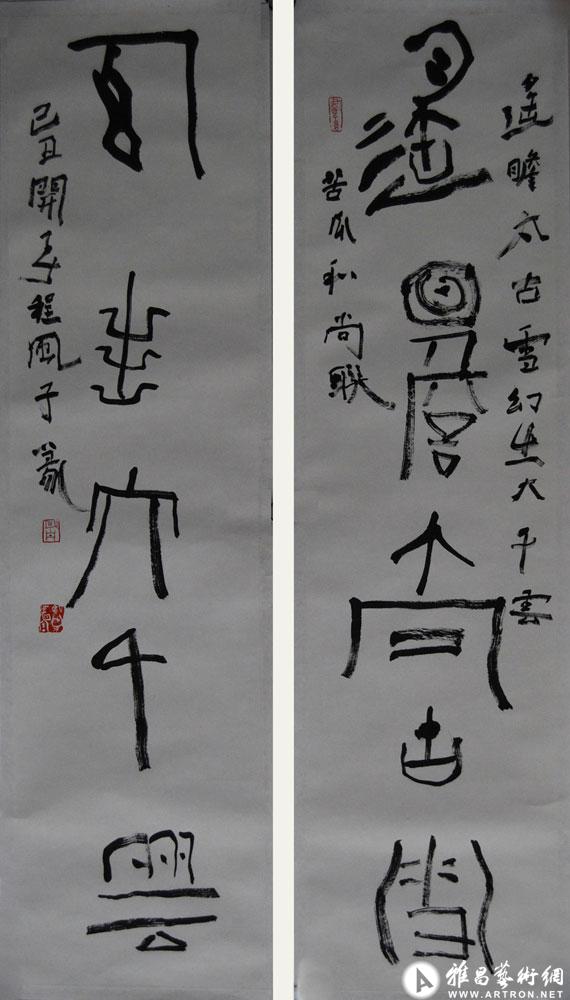 遥瞻太古雪幻生大千雲
遥瞻太古雪
苦瓜和尚聯
幻生大千雲
己丑開春程風子篆
雅昌藝術網
WWW.ARTRON.NET